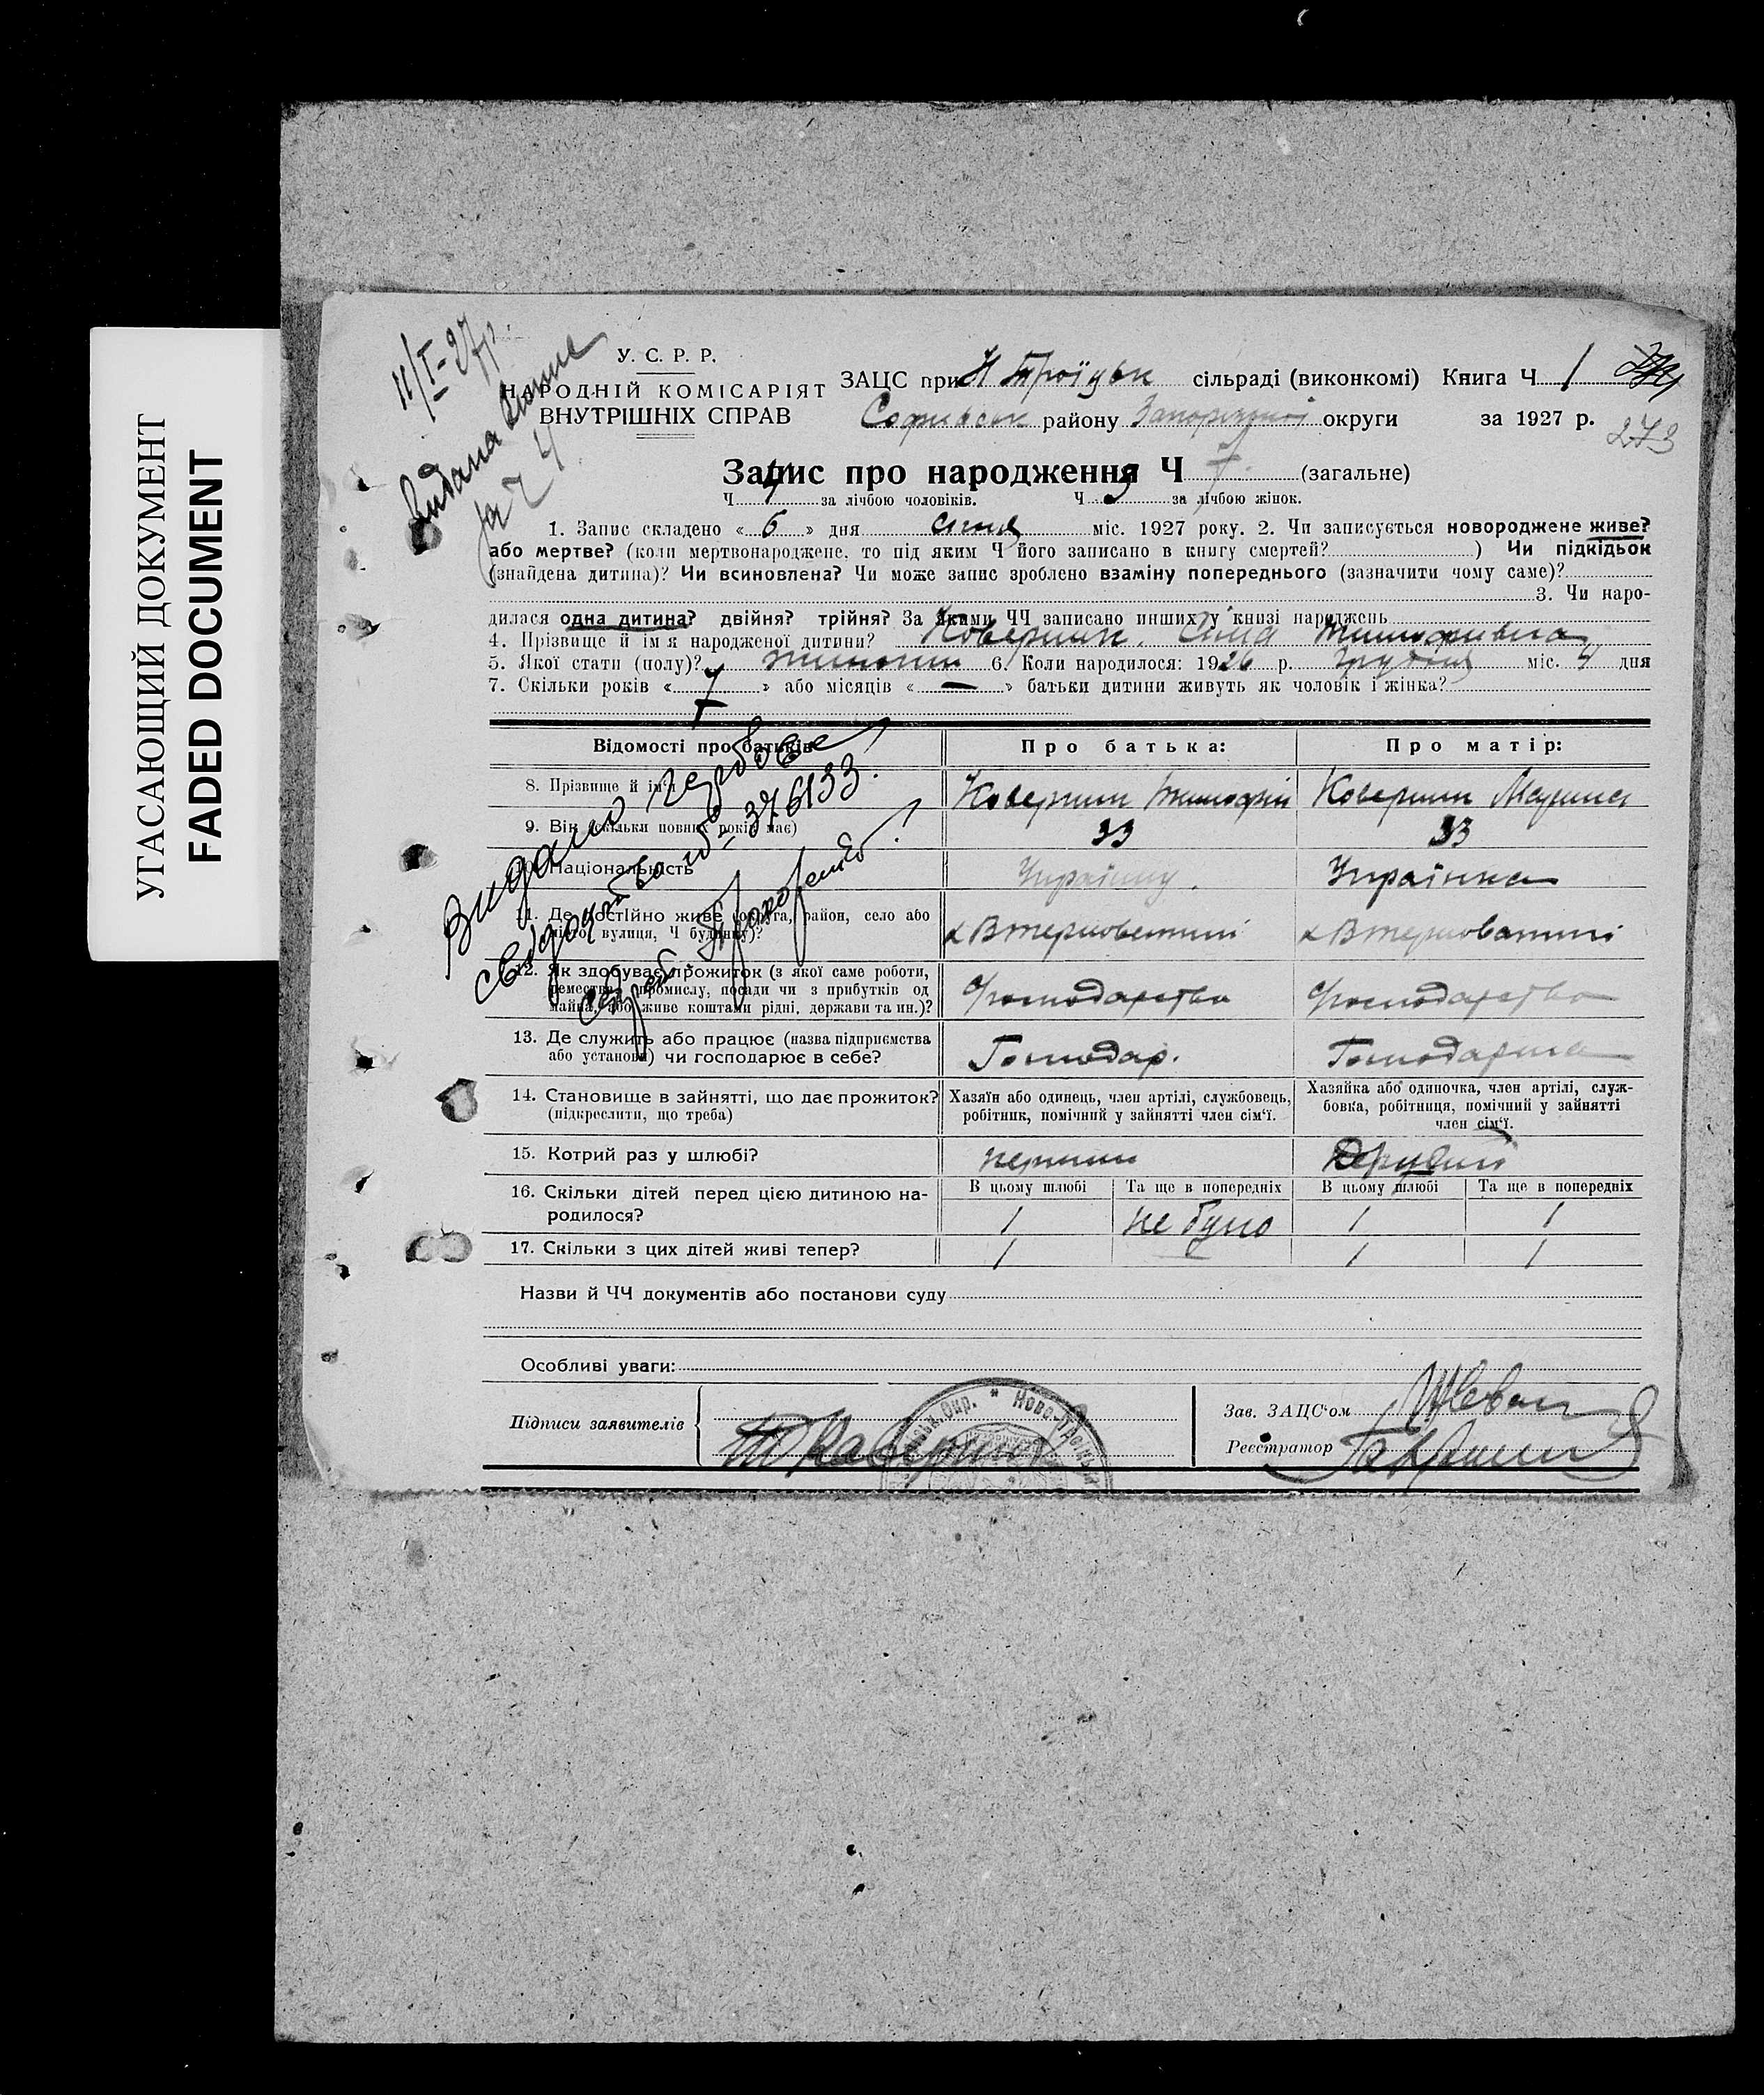 УГАСАЮЩИЙ ДОКУМЕНТ
FADED DOCUMENT
11/I-27р.
Видана
за Ч 4
У. С. Р. Р.
НАРОДНІЙ КОМІСАРІЯТ
ВНУТРІШНІХ СПРАВ
ЗАЦС при Н Троїцьк сільраді (виконкомі) Книга Ч 1
Софиевськ району Запорізької округи за 1927 р.
273
Запис про народження Ч 7 (загальне)
Ч 4 за лічбою чоловіків. Ч 3 за лічбою жінок.
1. Запис складено « 6 » дня січня міс. 1927 року. 2. Чи записується новороджене живе?
або мертве? (коли мертвонароджене, то під яким Ч його записано в книгу смертей? ) Чи підкідьок
(знайдена дитина)? Чи всиновлена? Чи може запис зроблено взаміну попереднього (зазначити чому саме)?
3. Чи наро-
дилася одна дитина? двійня? трійня? За якими ЧЧ записано инших у книзі народжень
4. Прізвище й ім'я народженої дитини? Тимофивна
5. Якої стати (полу)? жиночий 6. Коли народилося: 1926 р. Грудня міс. 4 дня
7. Скільки років « 7 » або місяців « — » батьки дитини живуть як чоловік і жінка?
Видано гербове
свідоцтво № 376133.
Відомості про батьків
Про батька:
Про матір:
8. Прізвище й ім'я
Коверник Тимофій
Коверник Марина
9. Вік (скільки повних років має)
33
33
10. Національність
Українц.
Українка
11. Де постійно живе (округа, район, село або
місто, вулиця, Ч будинку)?
12. Як здобуває прожиток (з якої саме роботи,
ремества, промислу, посади чи з прибутків од
майна, або живе коштами рідні, держави та ин.)?
Господарство
Господарство
13. Де служить або працює (назва підприємства
або установи) чи господарює в себе?
Господар.
14. Становище в зайнятті, що дає прожиток?
(підкреслити, що треба)
Хазяїн або одинець, член артілі, службовець,
робітник, помічний у зайнятті член сім'ї.
Хазяйка або одиночка, член артілі, служ-
бовка, робітниця, помічний у зайнятті
член сім'ї.
15. Котрий раз у шлюбі?
перший
Другий
16. Скільки дітей перед цією дитиною на-
родилося?
В цьому шлюбі
Та ще в попередніх
В цьому шлюбі
Та ще в попередніх
1
не було
1
1
17. Скільки з цих дітей живі тепер?
1
—
1
1
Назви й ЧЧ документів або постанови суду
Особливі уваги:
Підписи заявителів
Зав. ЗАЦС'ом
Реєстратор